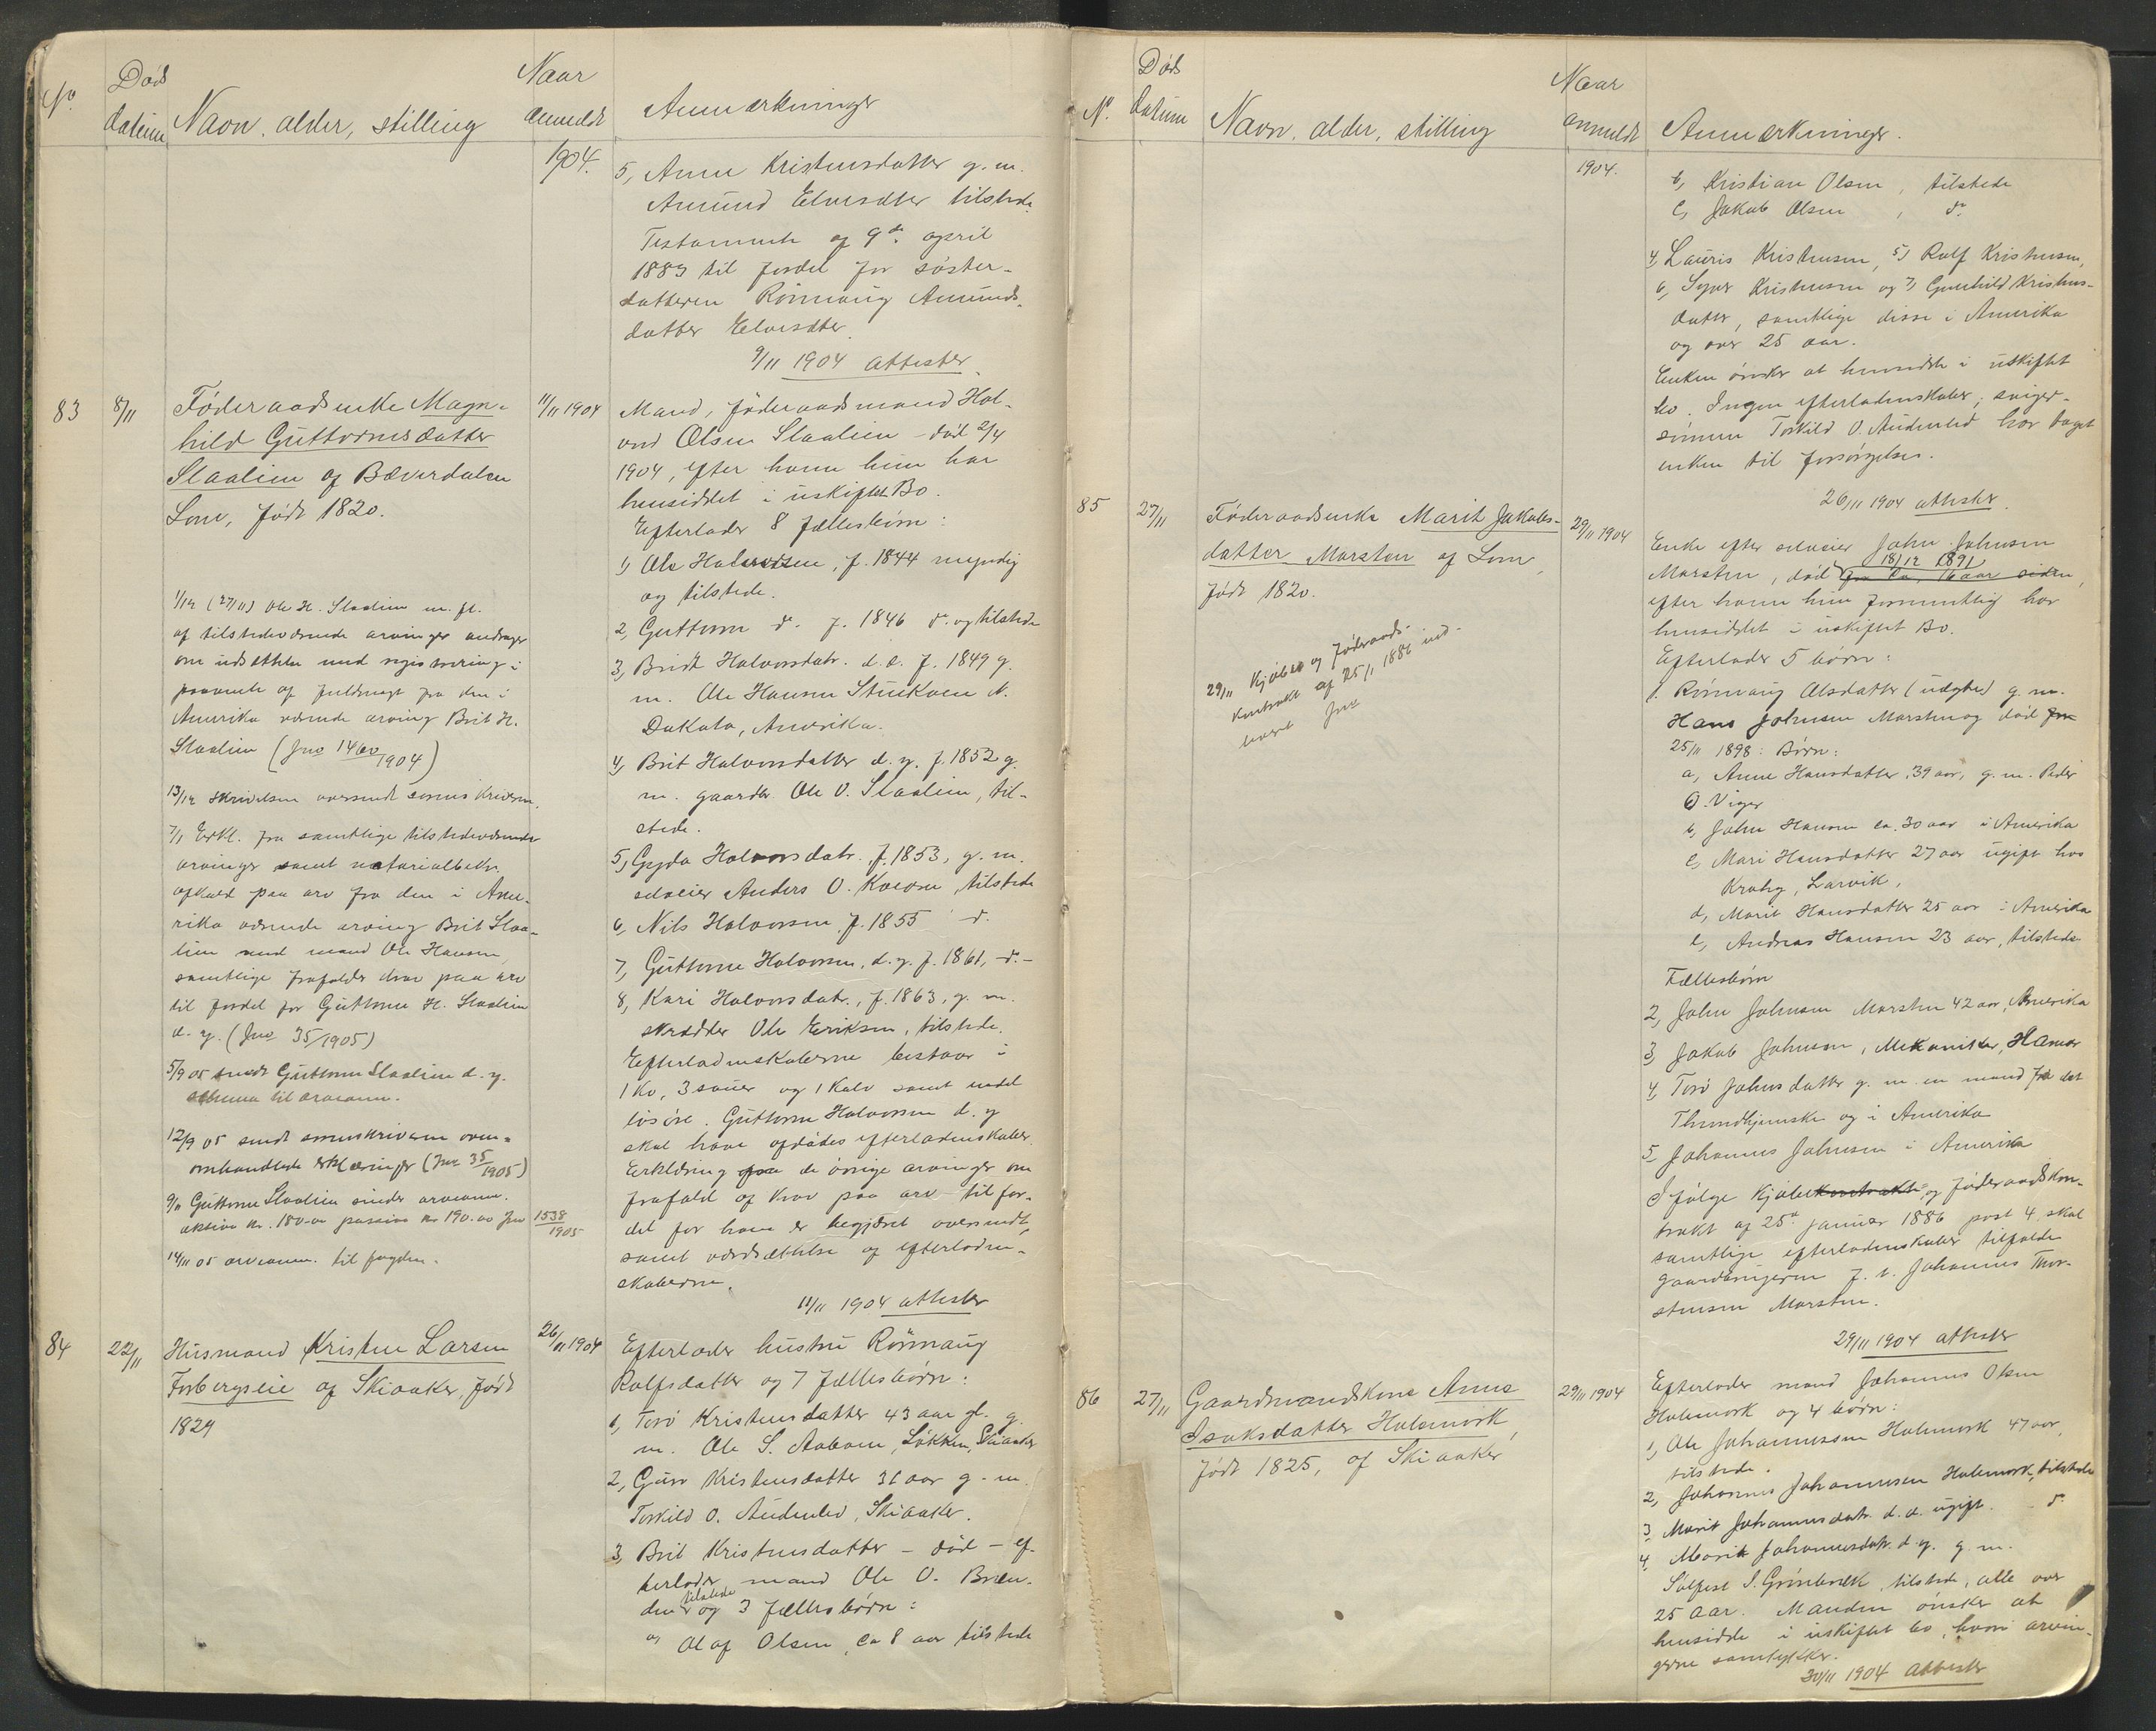 No
Døds
datum
Navn, alder, stilling
Naar
anmeldt
Anmærkninger
1904.
5, Anne Kristensdatter g. m.
Amund Elvesæter tilstede.
Testamente af 9de april
1883 til fordel for søster-
datteren Rønnaug Amunds-
datter Elvesæter.
9/11 1904 attester
83
8/11
Føderaadsenke Magn-
hild Guttormsdatter
Slaalien af Bæverdalen
Lom, født 1820.
1/12 (27/11) Ole H. Slaalien m. fl.
af tilstedeværende arvinger andrager
om udsættelse med registrering i
paavente af fuldmagt fra den i
Amerika værende arving Brit H.
Slaalien (Jno 1460/1904)
13/12 skrivelsen oversendt sorenskriveren.
7/1 Erkl. fra samtlige tilstedeværende
arvinger samt notarialbekr.
afkald paa arv fra den i Ame-
rika værende arving Brit Slaa-
lien med mand Ole Hansen,
samtlige frafalder krav paa arv
til fordel for Guttorm H. Slaalien
d. y. (Jno 35/1905)
5/9 05 sendt Guttorm Slaalien d. y.
schema til arveanm.
12/9 05 sendt sorenskriveren oven-
omhandlede erklæringer (Jno 35/1905)
9/11 Guttorm Slaalien sender arveanm.
aktiva kr. 180.00 passiva kr 190.00 Jno 1538/1905
14/11 05 arveanm. til fogden.
11/11 1904
Mand, føderaadsmand Hal-
vord Olsen Slaalien - død 2/4
1904, efter hvem hun har
hensiddet i uskiftet Bo.
Efterlader 8 fællesbørn:
1) Ole Halvorsen, f. 1844 myndig
og tilstede.
2, Guttorm do. f. 1846 do. og tilstede
3, Brit Halvorsdatr. d. e. f. 1849 g.
m. Ole Hansen N.
Dakota, Amerika.
4, Brit Halvorsdatter d. y. f. 1852 g.
m. gaardbr. Ole O. Slaalien, til-
stede.
5, Gyda Halvorsdatr. f. 1853, g. m.
selveier Anders O. Kvæven, tilstede
6, Nils Halvorsen f. 1855 do.
7, Guttorm Halvorsen, d. y. f. 1861, - do. -
8, Kari Halvorsdatr., f. 1863, g. m.
skrædder Ole Eriksen, tilstede.
Efterladenskaberne bestaar i
1 ko, 3 sauer og 1 kalv samt endel
løsøre. Guttorm Halvorsen d. y.
skal have afdødes efterladenskaber.
Erklæring fra de øvrige arvinger om
frafald af krav paa arv til for-
del for ham er begjæret oversendt,
samt værdsættelse af efterladen-
skaberne.
11/11 1904 attester
84
22/11
Husmand Kristen Larsen
Forbergseie af Skiaaker, født
1829
26/11 1904
Efterlader hustru Rønnaug
Rolfsdatter og 7 fællesbørn:
1, Torø Kristensdatter 43 aar gl. g.
m. Ole S. Aaboen, Løkken, Skiaaker
2, Guro Kristensdatter 31 aar g. m.
Torkild O. Andenled, Skiaaker.
3, Brit Kristensdatter - død - ef-
terlader mand Ole O. Bræn-
den tilstede og 3 fællesbørn:
a, Olaf Olsen, ca 8 aar tilstede
No.
Døds
datum
Navn, alder, stilling
Naar
anmeldt
Anmærkninger.
1904.
b, Kristian Olsen, tilstede
c, Jakob Olsen, do.
4, Lauris Kristensen, 5, Rolf Kristensen,
6, Syver Kristensen og 7, Gunhild Kristens-
datter, samtlige disse i Amerika
og over 25 aar.
Enken ønsker at hensidde i uskiftet
bo. Ingen efterladenskaber; sviger-
sønnen Torkild O. Andenled har taget
enken til forsørgelse.
26/11 1904 attester.
85
27/11
Føderaadsenke Marit Jakobs-
datter Marsten af Lom,
født 1820.
29/11 Kjøbe- og føderaads-
kontrakt af 25/1 1886 ind-
29/11 1904
Enke efter selveier John Johnsen
Marsten, død for ca. 16 aar siden, 18/12 1891
efter hvem hun formentlig har
hensiddet i uskiftet Bo.
Efterlader 5 børn:
1. Rønnaug Olsdatter (uægte) g. m.
Hans Johnsen Marsten og død
25/11 1898: Børn:
a, Anne Hansdatter, 39 aar, g. m. Peder
O. Viger
b, John Hansen ca. 30 aar i Amerika
c, Mari Hansdatter 27 aar ugift hos
Krohg, Larvik,
d, Marit Hansdatter 25 aar i Amerika
e, Andreas Hansen 23 aar, tilstede
Fællesbørn
2, John Johnsen Marsten 42 aar, Amerika
3, Jakob Johnsen, Mekaniker, Hamar
4, Torø Johnsdatter g. m. en mand fra det
Throndhjemske og i Amerika
5, Johannes Johnsen i Amerika
Ifølge kjøbekontrakt- og føderaadskon-
trakt af 25de januar 1886 post 4 skal
samtlige efterladenskaber tilfalde
gaardbrugeren f. t. Johannes Thor-
stensen Marsten.
29/11 1904 attester
86
27/11
Gaardmandskone Anne
Isaksdatter Holemork,
født 1825, af Skiaaker
29/11 1904
Efterlader mand Johannes Olsen
Holemork og 4 børn:
1, Ole Johannessen Holemork 47 aar,
tilstede.
2, Johannes Johannessen Holemork, tilstede
3, Marit Johannesdatr. d. e. ugift. - do.
4, Marit Johannesdatr. d. y. g. m.
Sølfest S. Grønbæk, tilstede, alle over
25 aar. Manden ønsker at
hensidde i uskiftet bo, hvori arvin-
gerne samtykker.
30/11 1904 attester